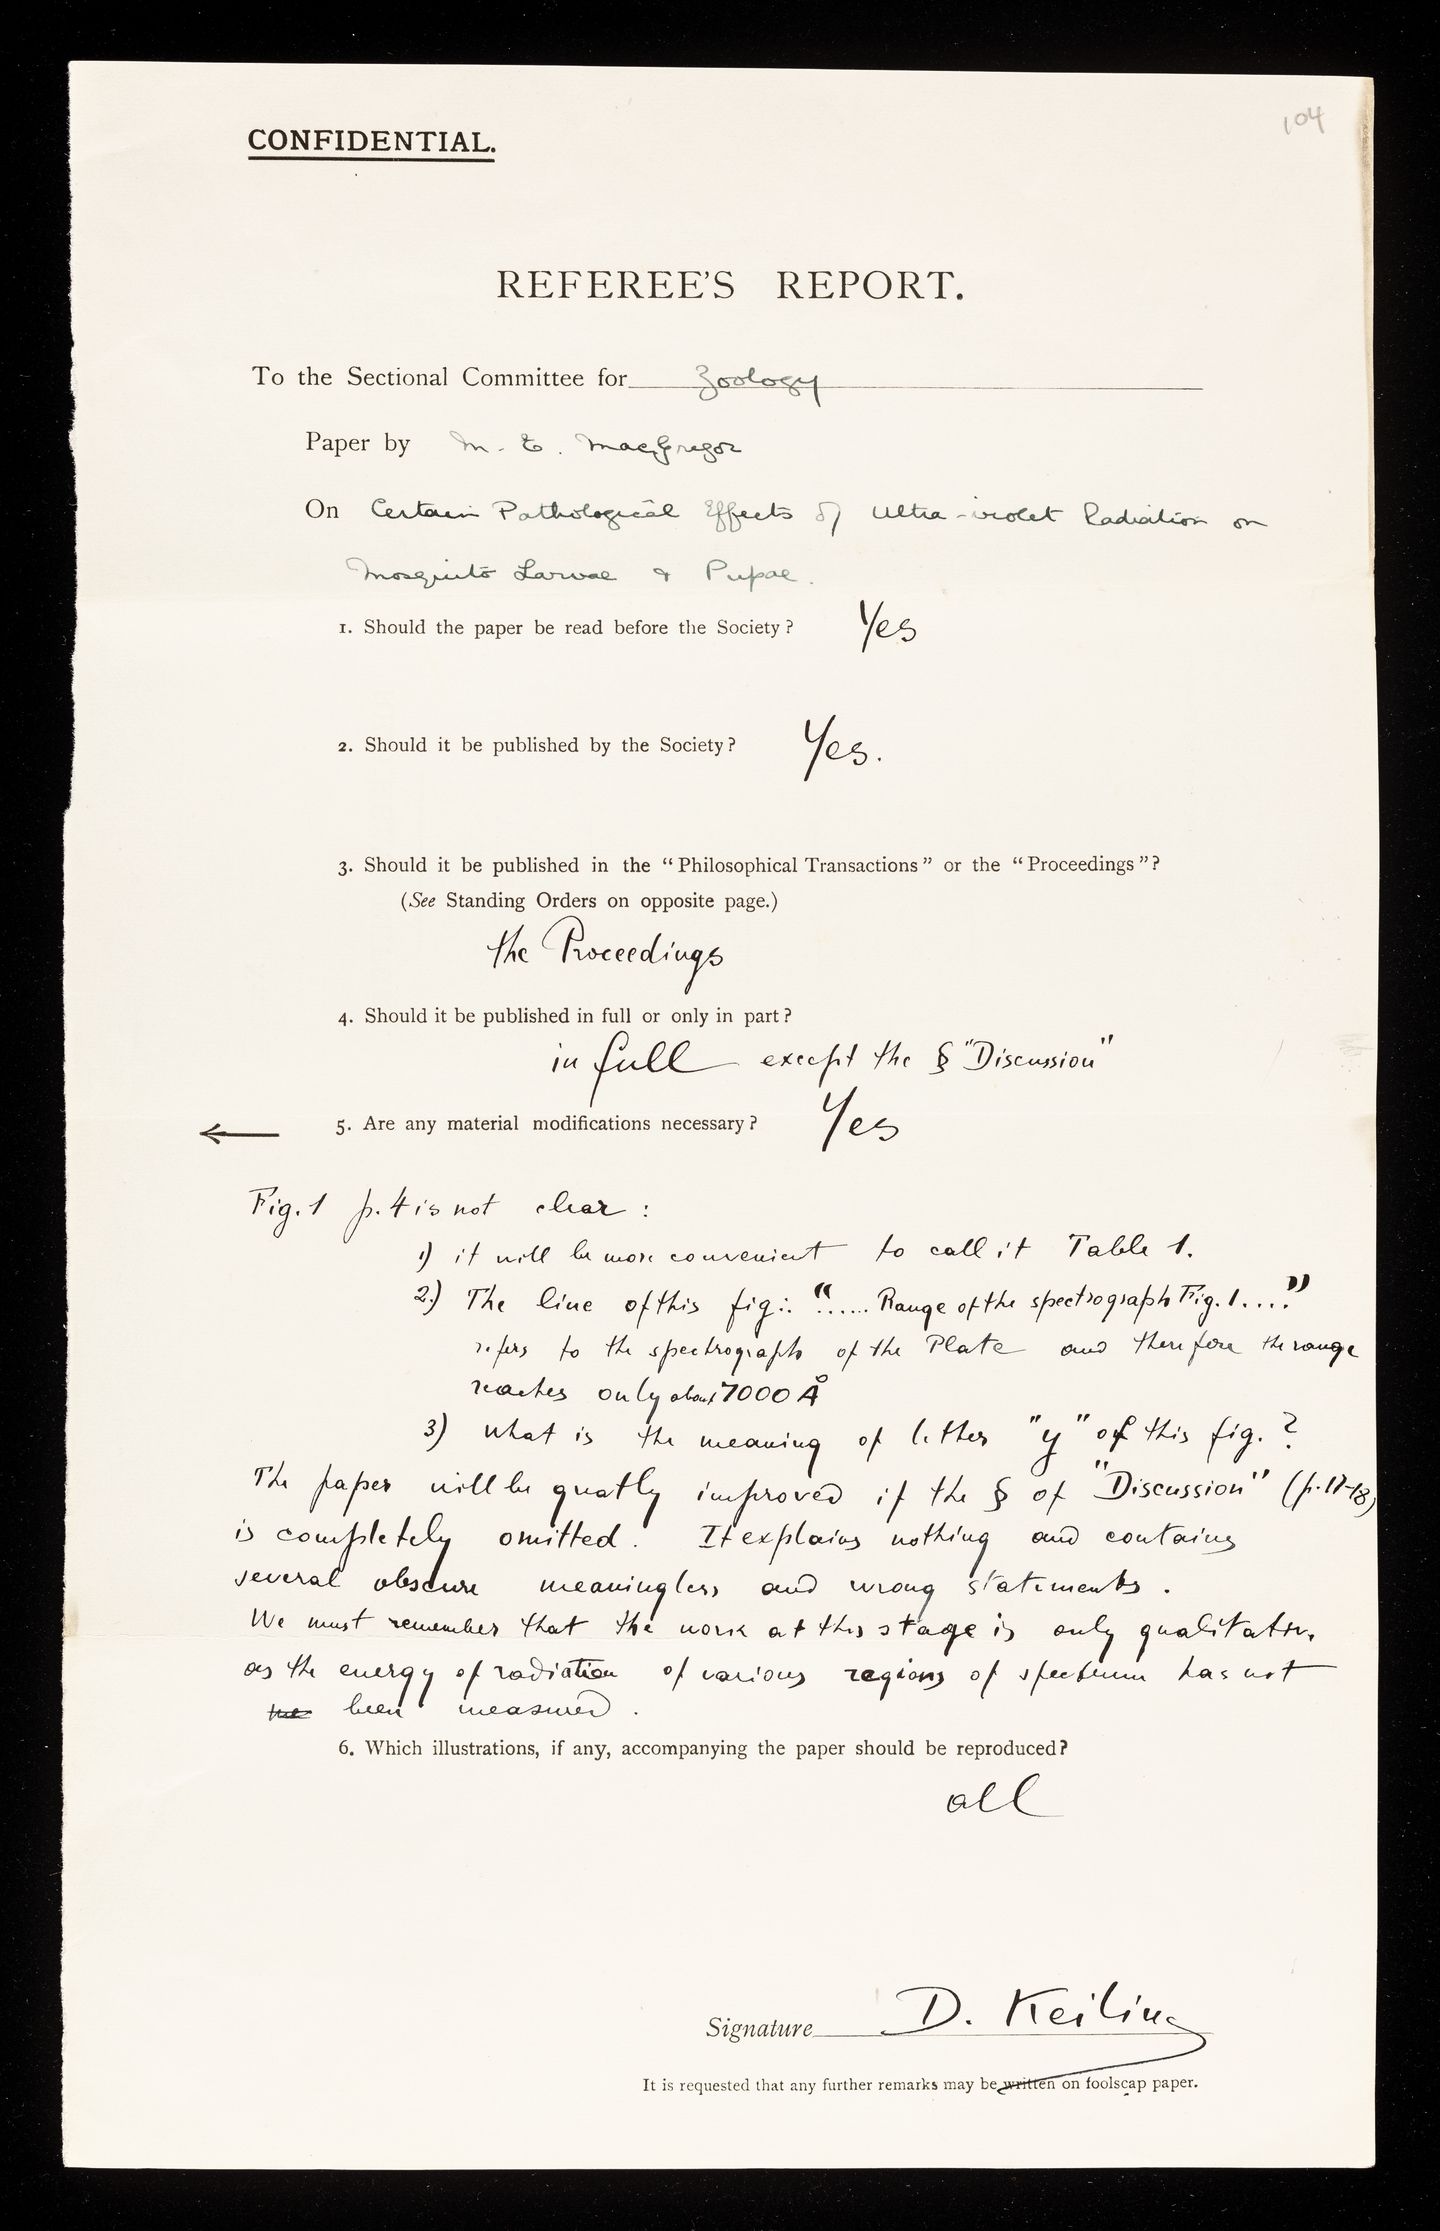 104
CONFIDENTIAL.
REFEREE'S REPORT.
To the Sectional Committee for Zoology
Paper by M. E. MacGregor
On Certain Pathological Effects of Ultra-violet Radiation on
Mosquito Larvae & Pupae.
1. Should the paper be read before the Society? Yes
2. Should it be published by the Society? Yes.
3. Should it be published in the "Philosophical Transactions" or the "Proceedings"?
(See Standing Orders on opposite page.)
the Proceedings
4. Should it be published in full or only in part?
in full except the § "Discussion"
← 5. Are any material modifications necessary? Yes
Fig. 1 p. 4 is not clear :
1) it will be more convenient to call it Table 1.
2.) The line of this fig:. "...... Range of the spectrograph Fig. 1...."
refers to the spectrograph of the Plate and therefore the range
reaches only about 7000 Å
3) what is the meaning of letter "y" of this fig. ?
The paper will be greatly improved if the § of "Discussion" (p. 17-18)
is completely omitted. It explains nothing and contains
several obscure meaningless and wrong statements.
We must remember that the work at this stage is only qualitative
as the energy of radiation of various regions of spectrum has not
been measured.
6. Which illustrations, if any, accompanying the paper should be reproduced?
all
Signature D. Keilin
It is requested that any further remarks may be written on foolscap paper.